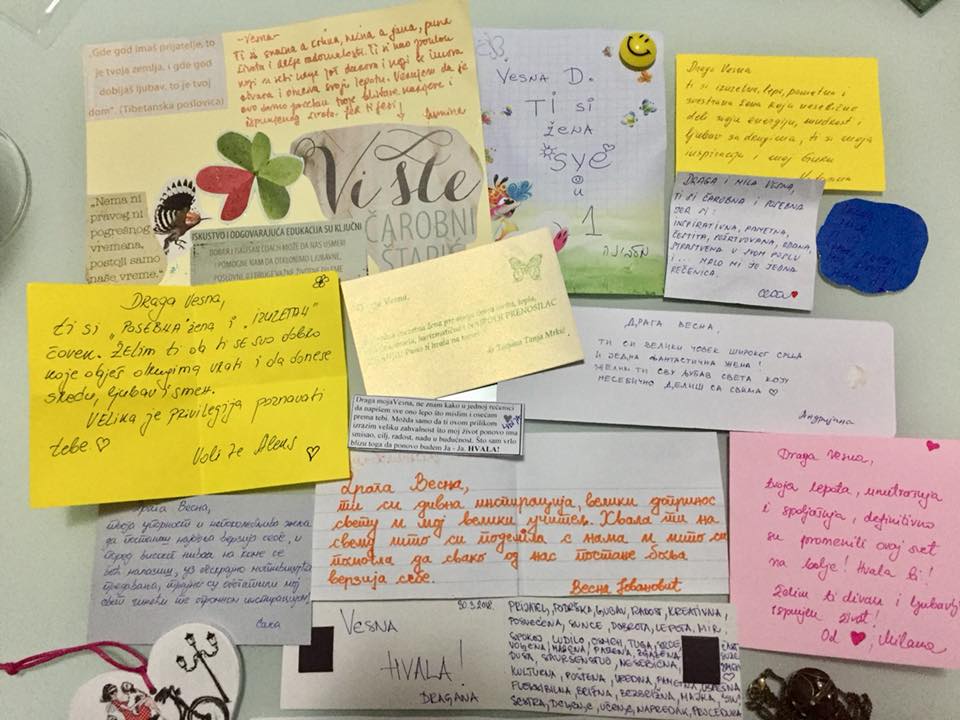 „Gde god imaš prijatelje, to
je tvoja zemlja, i gde god
dobijaš ljubav, to je tvoj
dom“ (Tibetanska poslovica)
-Vesna-
Ti si snažna a krhka, nežna a jaka, puna
života i
Ti si kao
otvara i
Jasmina
Više
ČAROBNI
ŠTAPIĆ
„Nema ni
pravog ni
pogrešnog
vremena,
postoji samo
naše vreme.“
ISKUSTVO I ODGOVARAJUĆA EDUKACIJA SU KLJUČNI
DOBAR I ISKUSAN COACH MOŽE DA NAS USMERI
I POMOGNE NAM DA OTKLONIMO LJUBAVNE,
POSLOVNE I DRUGE VAŽNE ŽIVOTNE DILEME
VESNA D.
TI si
žena
sve
u
1
Draga Vesna
ti si izuzetna, lepa, pametna i
svestrana žena koja nesebično
deli svoju energiju, mudrost i
ljubav sa drugima, ti si moja
inspiracija i moj
DRAGA I MILA VESNA,
TI SI ČAROBNA I POSEBNA
JER SI:
INSPIRATIVNA, PAMETNA,
POŽRTVOVANA, ODANA,
U SVOM POSLU
I ... MALO MI JE JEDNA
REČENICA.
Draga Vesna,
ti si „POSEBNA“ žena i „IZUZETAN“
čovek. Želim ti da ti se svo dobro
koje daješ drugima vrati i da donese
sreću, ljubav i smeh.
VELIKA je privilegija poznavati
tebe.
Voli te Aleks
Vesna,
NAJVEĆI PRENOSILAC
hvala na
Tatjana Tanja Mrkić
ДРАГА ВЕСНА,
ТИ СИ ВЕЛИКИ ЧОВЕК ШИРОКОГ СРЦА
И ЈЕДНА ФАНТАСТИЧНА ЖЕНА!
ЖЕЛИМ ТИ СВУ ЉУБАВ СВЕТА КОЈУ
НЕСЕБИЧНО ДЕЛИШ СА СВИМА
Андријана
Draga mojaVesna, ne znam kako u jednoj rečenici
da napišem sve ono lepo što mislim i osećam
prema tebi. Možda samo da ti ovom prilikom
izrazim veliku zahvalnost što moj život ponovo ima
smisao, cilj, radost, nadu u budućnost. Što sam vrlo
blizu toga da ponovo budem Ja - Ja. HVALA!
Драга Весна,
ти си дивна инспирација, велики допринос
свету и мој велики учитељ. Хвала ти на
свему што си поделила с нама и што си
помогла да свако од нас постане боља
верзија себе.
Весна Јовановић
Draga Vesna,
tvoja lepota, unutrašnja
i spoljašnja, definitivno
su promenili ovaj svet
na bolje! Hvala ti!
Želim ti divan i ljubavlju
ispunjen život!
Od Milana
Драга Весна,
твоја упорност и непоколебљива жеља
да постанеш најбоља верзија себе, и
поред високог нивоа на коме се
већ налазиш, уз
предавања, трајно су обогатили мој
свет инспирацијом.
Сања
30.3.2018.
VESNA
HVALA!
DRAGANA
PRIJATELJ, PODRŠKA, LJUBAV, RADOST, KREATIVNA,
POSVEĆENA, SUNCE, DOBROTA, LEPOTA, MIR,
SPOKOJ, LUDILO, OSMEH, TUGA, SRCE,
VOLJENA, PAŽENA,
DUŠA, SAVRŠENSTVO, NESEBIČNA,
KULTURNA, POŠTENA, UREDNA, PAMETNA, USPEŠNA
FLEKSIBILNA, BRIŽNA, BEZBRIŽNA, MAJKA,
SESTRA, UČENJE, NAPREDAK, PROCEDURA